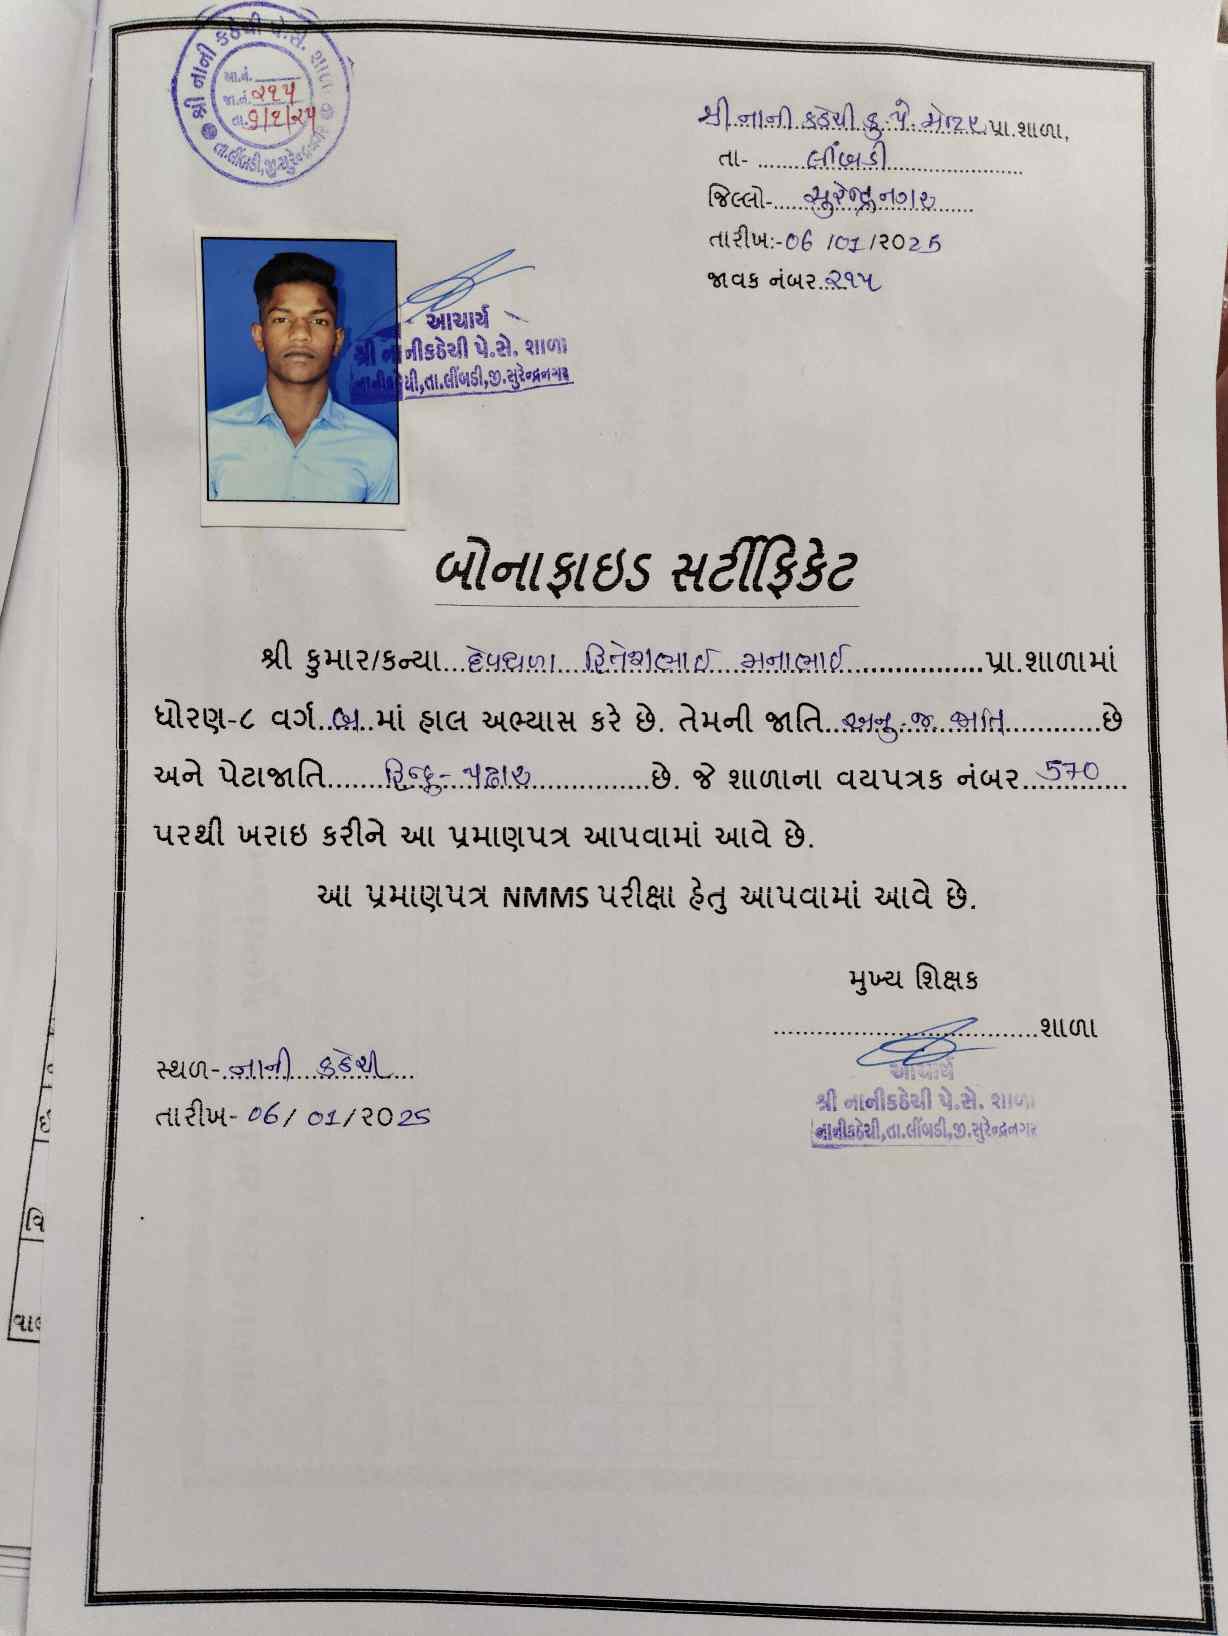 શ્રી નાની કઠેચી પે.સે. શાળા
આ.નં.
જા.નં. ૨૧૫
તા. ૬/૧/૨૫
તા.લીંબડી,જી.સુરેન્દ્રનગર
શ્રી નાની કઠેચી કુ.પે.સેન્ટર પ્રા.શાળા,
તા- લીંબડી
જિલ્લો- સુરેન્દ્રનગર
તારીખ:-06/01/૨0૨5
જાવક નંબર ૨૧૫
આચાર્ય
શ્રી નાનીકઠેચી પે.સે. શાળા
નાનીકઠેચી,તા.લીંબડી,જી.સુરેન્દ્રનગર
બોનાફાઇડ સર્ટીફિકેટ
શ્રી કુમાર/કન્યા દેવથળા હિતેશભાઈ મનાભાઈ પ્રા.શાળામાં
ધોરણ-૮ વર્ગ બ માં હાલ અભ્યાસ કરે છે. તેમની જાતિ અનુ.જ.જાતિ છે
અને પેટાજાતિ હિન્દુ-પઢાર છે. જે શાળાના વયપત્રક નંબર 570
પરથી ખરાઇ કરીને આ પ્રમાણપત્ર આપવામાં આવે છે.
આ પ્રમાણપત્ર NMMS પરીક્ષા હેતુ આપવામાં આવે છે.
મુખ્ય શિક્ષક
શાળા
સ્થળ- નાની કઠેચી
તારીખ- 06/01/૨0૨5
આચાર્ય
શ્રી નાનીકઠેચી પે.સે. શાળા
નાનીકઠેચી,તા.લીંબડી,જી.સુરેન્દ્રનગર